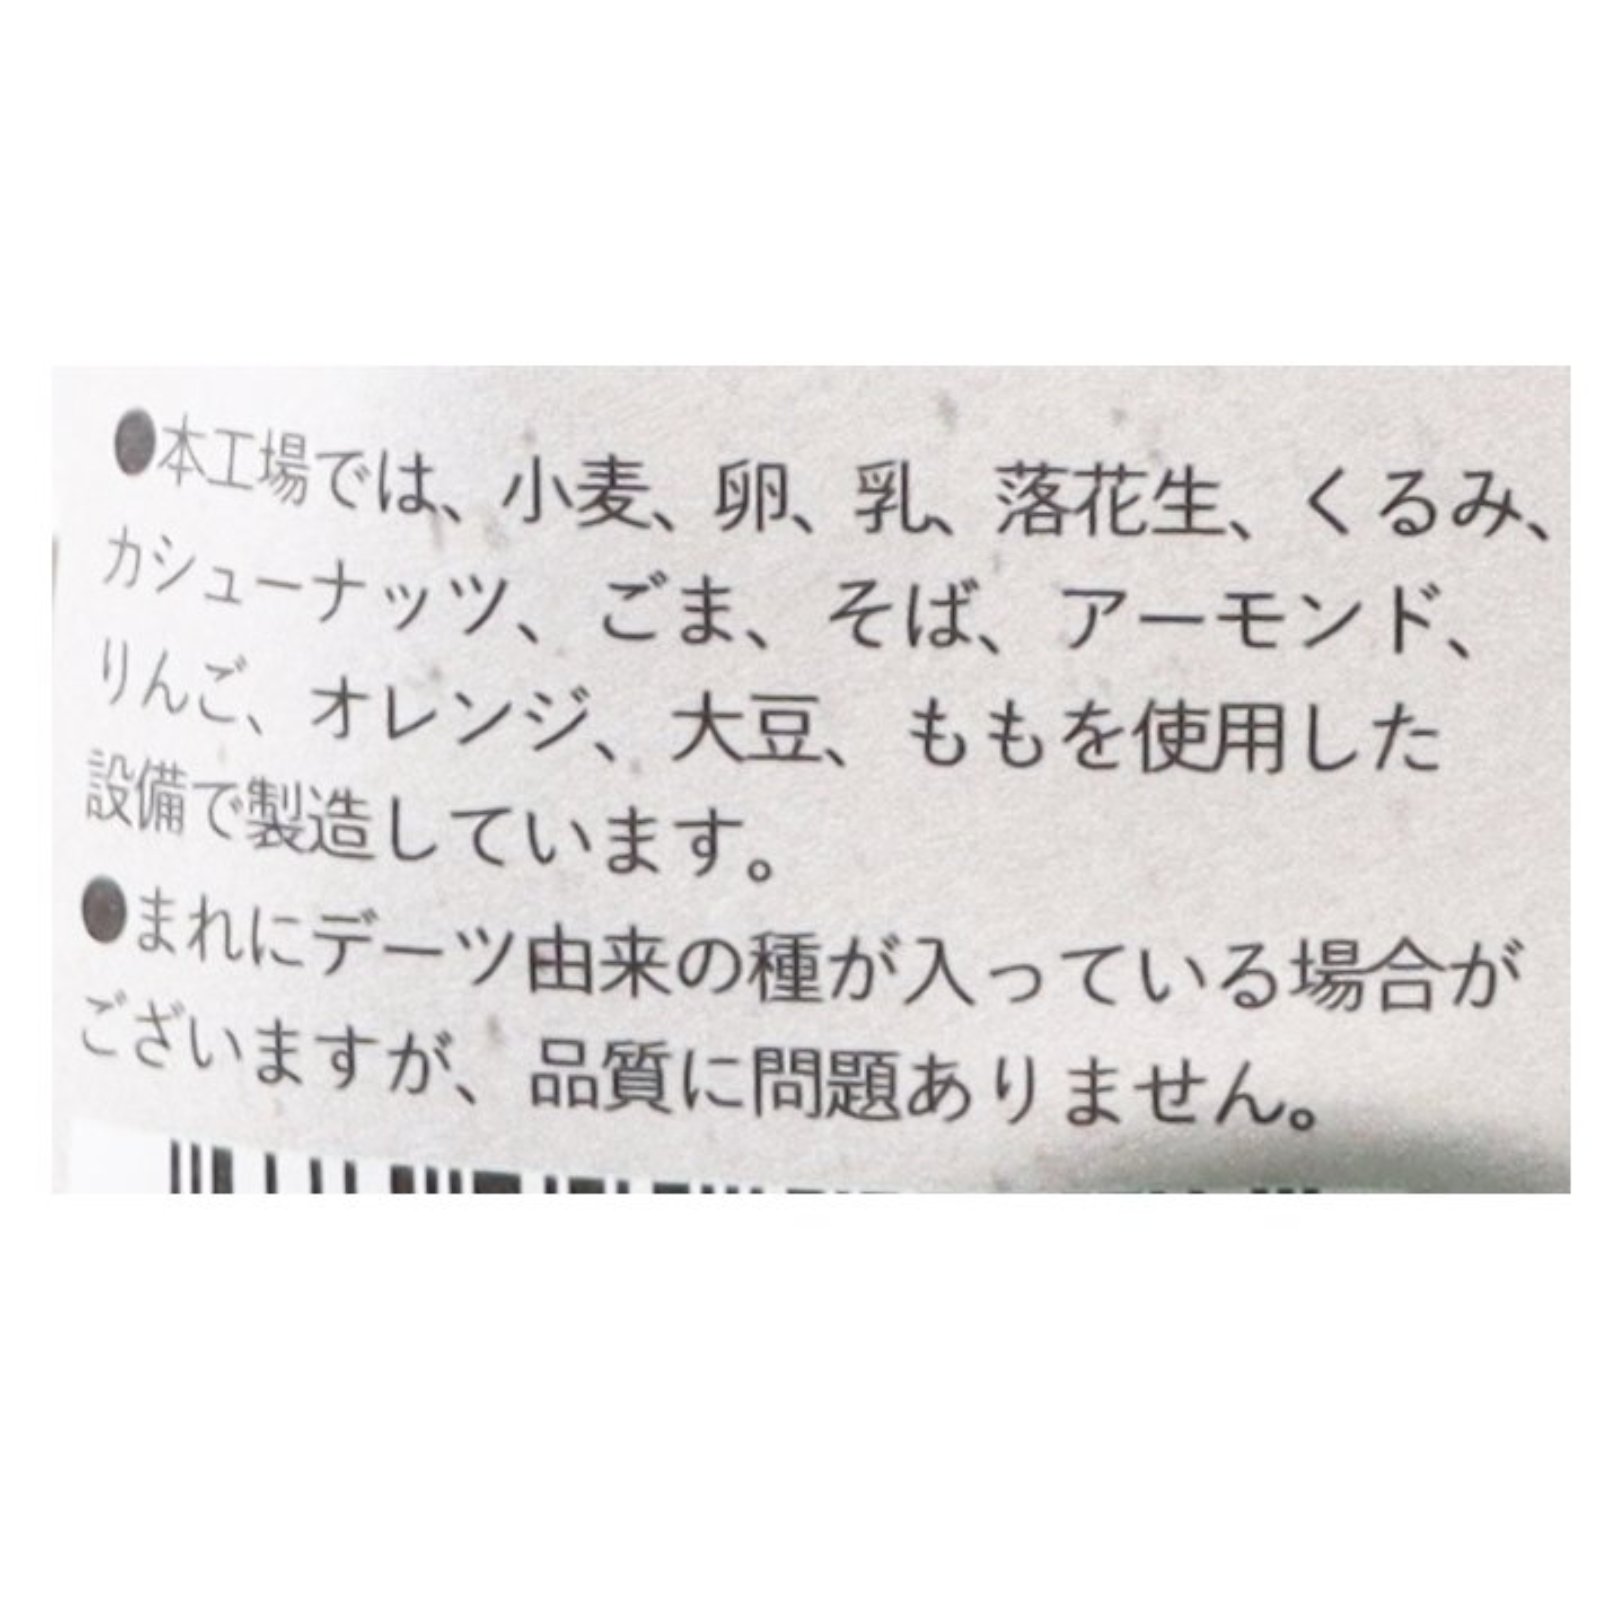 ●本工場では、小麦、卵、乳、落花生、くるみ、
カシューナッツ、ごま、そば、アーモンド、
りんご、オレンジ、大豆、ももを使用した
設備で製造しています。
●まれにデーツ由来の種が入っている場合が
ございますが、品質に問題ありません。